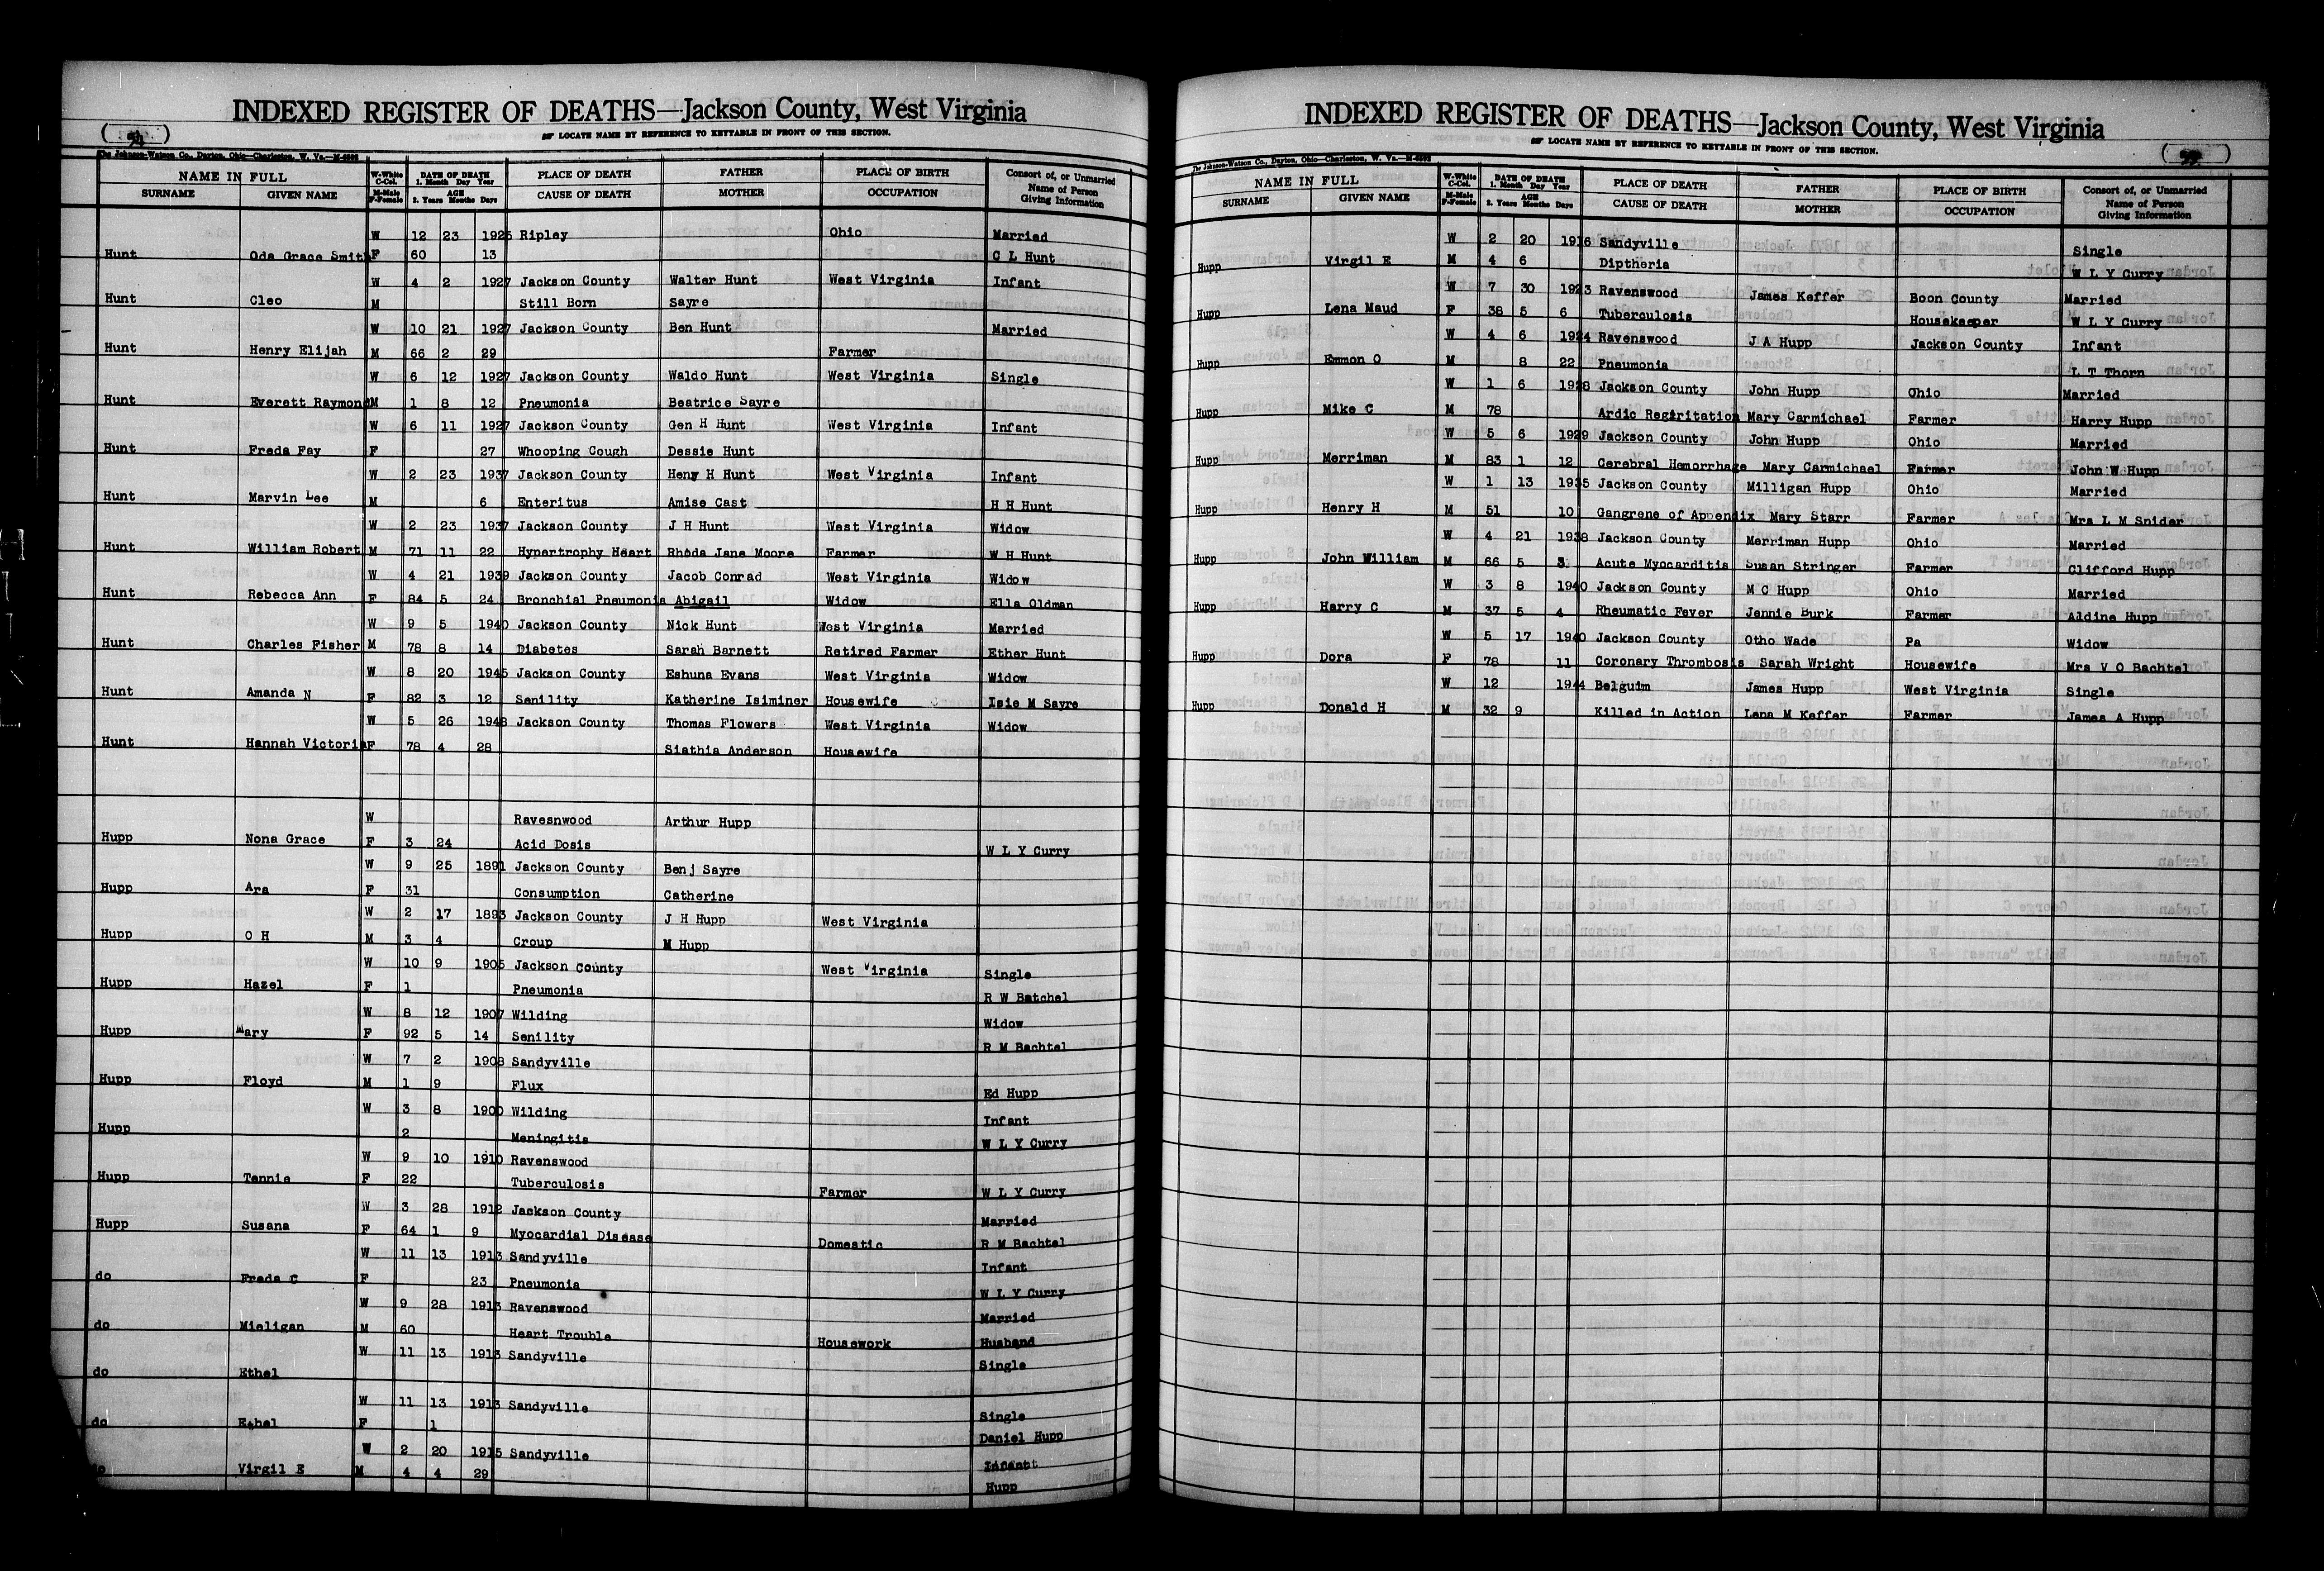 INDEXED REGISTER OF DEATHS—Jackson County, West Virginia
LOCATE NAME BY REFERENCE TO KEYTABLE IN FRONT OF THIS SECTION.
The Johnson-Watson Co., Dayton, Ohio—Charleston, W. Va.
NAME IN FULL W-White C-Col. DATE OF DEATH 1. Month Day Year PLACE OF DEATH FATHER PLACE OF BIRTH Consort of, or Unmarried
SURNAME GIVEN NAME M-Male F-Female AGE 2. Years Months Days CAUSE OF DEATH MOTHER OCCUPATION Name of Person Giving Information
W 12 23 1925 Ripley Ohio Married
Hunt Oda Grace Smith F 60 13 C L Hunt
W 4 2 1927 Jackson County Walter Hunt West Virginia Infant
Hunt Cleo M Still Born Sayre
W 10 21 1927 Jackson County Ben Hunt Married
Hunt Henry Elijah M 66 2 29 Farmer
W 6 12 1927 Jackson County Waldo Hunt West Virginia Single
Hunt Everett Raymond M 1 8 12 Pneumonia Beatrice Sayre
W 6 11 1927 Jackson County Gen H Hunt West Virginia Infant
Hunt Freda Fay F 27 Whooping Cough Dessie Hunt
W 2 23 1937 Jackson County Heny H Hunt West Virginia Infant
Hunt Marvin Lee M 6 Enteritus Amise Cast H H Hunt
W 2 23 1937 Jackson County J H Hunt West Virginia Widow
Hunt William Robert M 71 11 22 Hypertrophy Heart Rhoda Jane Moore Farmer W H Hunt
W 4 21 1939 Jackson County Jacob Conrad West Virginia Widow
Hunt Rebecca Ann F 84 5 24 Bronchial Pneumonia Abigail Widow Ella Oldman
W 9 5 1940 Jackson County Nick Hunt West Virginia Married
Hunt Charles Fisher M 78 8 14 Diabetes Sarah Barnett Retired Farmer Ether Hunt
W 8 20 1945 Jackson County Eshuna Evans West Virginia Widow
Hunt Amanda N F 82 3 12 Senility Katherine Isiminer Housewife Isie M Sayre
W 5 26 1948 Jackson County Thomas Flowers West Virginia Widow
Hunt Hannah Victoria F 78 4 28 Siathia Anderson Housewife
W Ravesnwood Arthur Hupp
Hupp Nona Grace F 3 24 Acid Dosis W L Y Curry
W 9 25 1891 Jackson County Benj Sayre
Hupp Ara F 31 Consumption Catherine
W 2 17 1893 Jackson County J H Hupp West Virginia
Hupp O H M 3 4 Croup M Hupp
W 10 9 1905 Jackson County West Virginia Single
Hupp Hazel F 1 Pneumonia R W Batchel
W 8 12 1907 Wilding Widow
Hupp Mary F 92 5 14 Senility R M Bachtel
W 7 2 1908 Sandyville
Hupp Floyd M 1 9 Flux Ed Hupp
W 3 8 1900 Wilding Infant
Hupp 2 Meningitis W L Y Curry
W 9 10 1910 Ravenswood
Hupp Tannie F 22 Tuberculosis Farmer W L Y Curry
W 3 28 1912 Jackson County Married
Hupp Susana F 64 1 9 Myocardial Disease Domestic R M Bachtel
W 11 13 1913 Sandyville Infant
do Freda C F 23 Pneumonia W L Y Curry
W 9 28 1913 Ravenswood Married
do Mieligan M 60 Heart Trouble Housework Husband
W 11 13 1913 Sandyville Single
do Ethel
W 11 13 1913 Sandyville Single
do Ethel F 1 Daniel Hupp
W 2 20 1915 Sandyville Infant
do Virgil E M 4 4 29 Hupp
INDEXED REGISTER OF DEATHS—Jackson County, West Virginia
LOCATE NAME BY REFERENCE TO KEYTABLE IN FRONT OF THIS SECTION.
The Johnson-Watson Co., Dayton, Ohio—Charleston, W. Va.
NAME IN FULL W-White C-Col. DATE OF DEATH 1. Month Day Year PLACE OF DEATH FATHER PLACE OF BIRTH Consort of, or Unmarried
SURNAME GIVEN NAME M-Male F-Female AGE 2. Years Months Days CAUSE OF DEATH MOTHER OCCUPATION Name of Person Giving Information
W 2 20 1916 Sandyville Single
Hupp Virgil E M 4 6 Diptheria W L Y Curry
W 7 30 1923 Ravenswood James Keffer Boon County Married
Hupp Lena Maud F 38 5 6 Tuberculosis Housekeeper W L Y Curry
W 4 6 1924 Ravenswood J A Hupp Jackson County Infant
Hupp Emmon O M 8 22 Pneumonia L T Thorn
W 1 6 1928 Jackson County John Hupp Ohio Married
Hupp Mike C M 78 Ardic Regiritation Mary Carmichael Farmer Harry Hupp
W 5 6 1929 Jackson County John Hupp Ohio Married
Hupp Merriman M 83 1 12 Cerebral Hemorrhage Mary Carmichael Farmer John W Hupp
W 1 13 1935 Jackson County Milligan Hupp Ohio Married
Hupp Henry H M 51 10 Gangrene of Appendix Mary Starr Farmer Mrs L M Snider
W 4 21 1938 Jackson County Merriman Hupp Ohio Married
Hupp John William M 66 5 3 Acute Myocarditis Susan Stringer Farmer Clifford Hupp
W 3 8 1940 Jackson County M C Hupp Ohio Married
Hupp Harry C M 37 5 4 Rheumatic Fever Jennie Burk Farmer Aldine Hupp
W 5 17 1940 Jackson County Otho Wade Pa Widow
Hupp Dora F 78 11 Coronary Thrombosis Sarah Wright Housewife Mrs V O Bachtel
W 12 1944 Belguim James Hupp West Virginia Single
Hupp Donald H M 32 9 Killed in Action Lena M Keffer Farmer James A Hupp